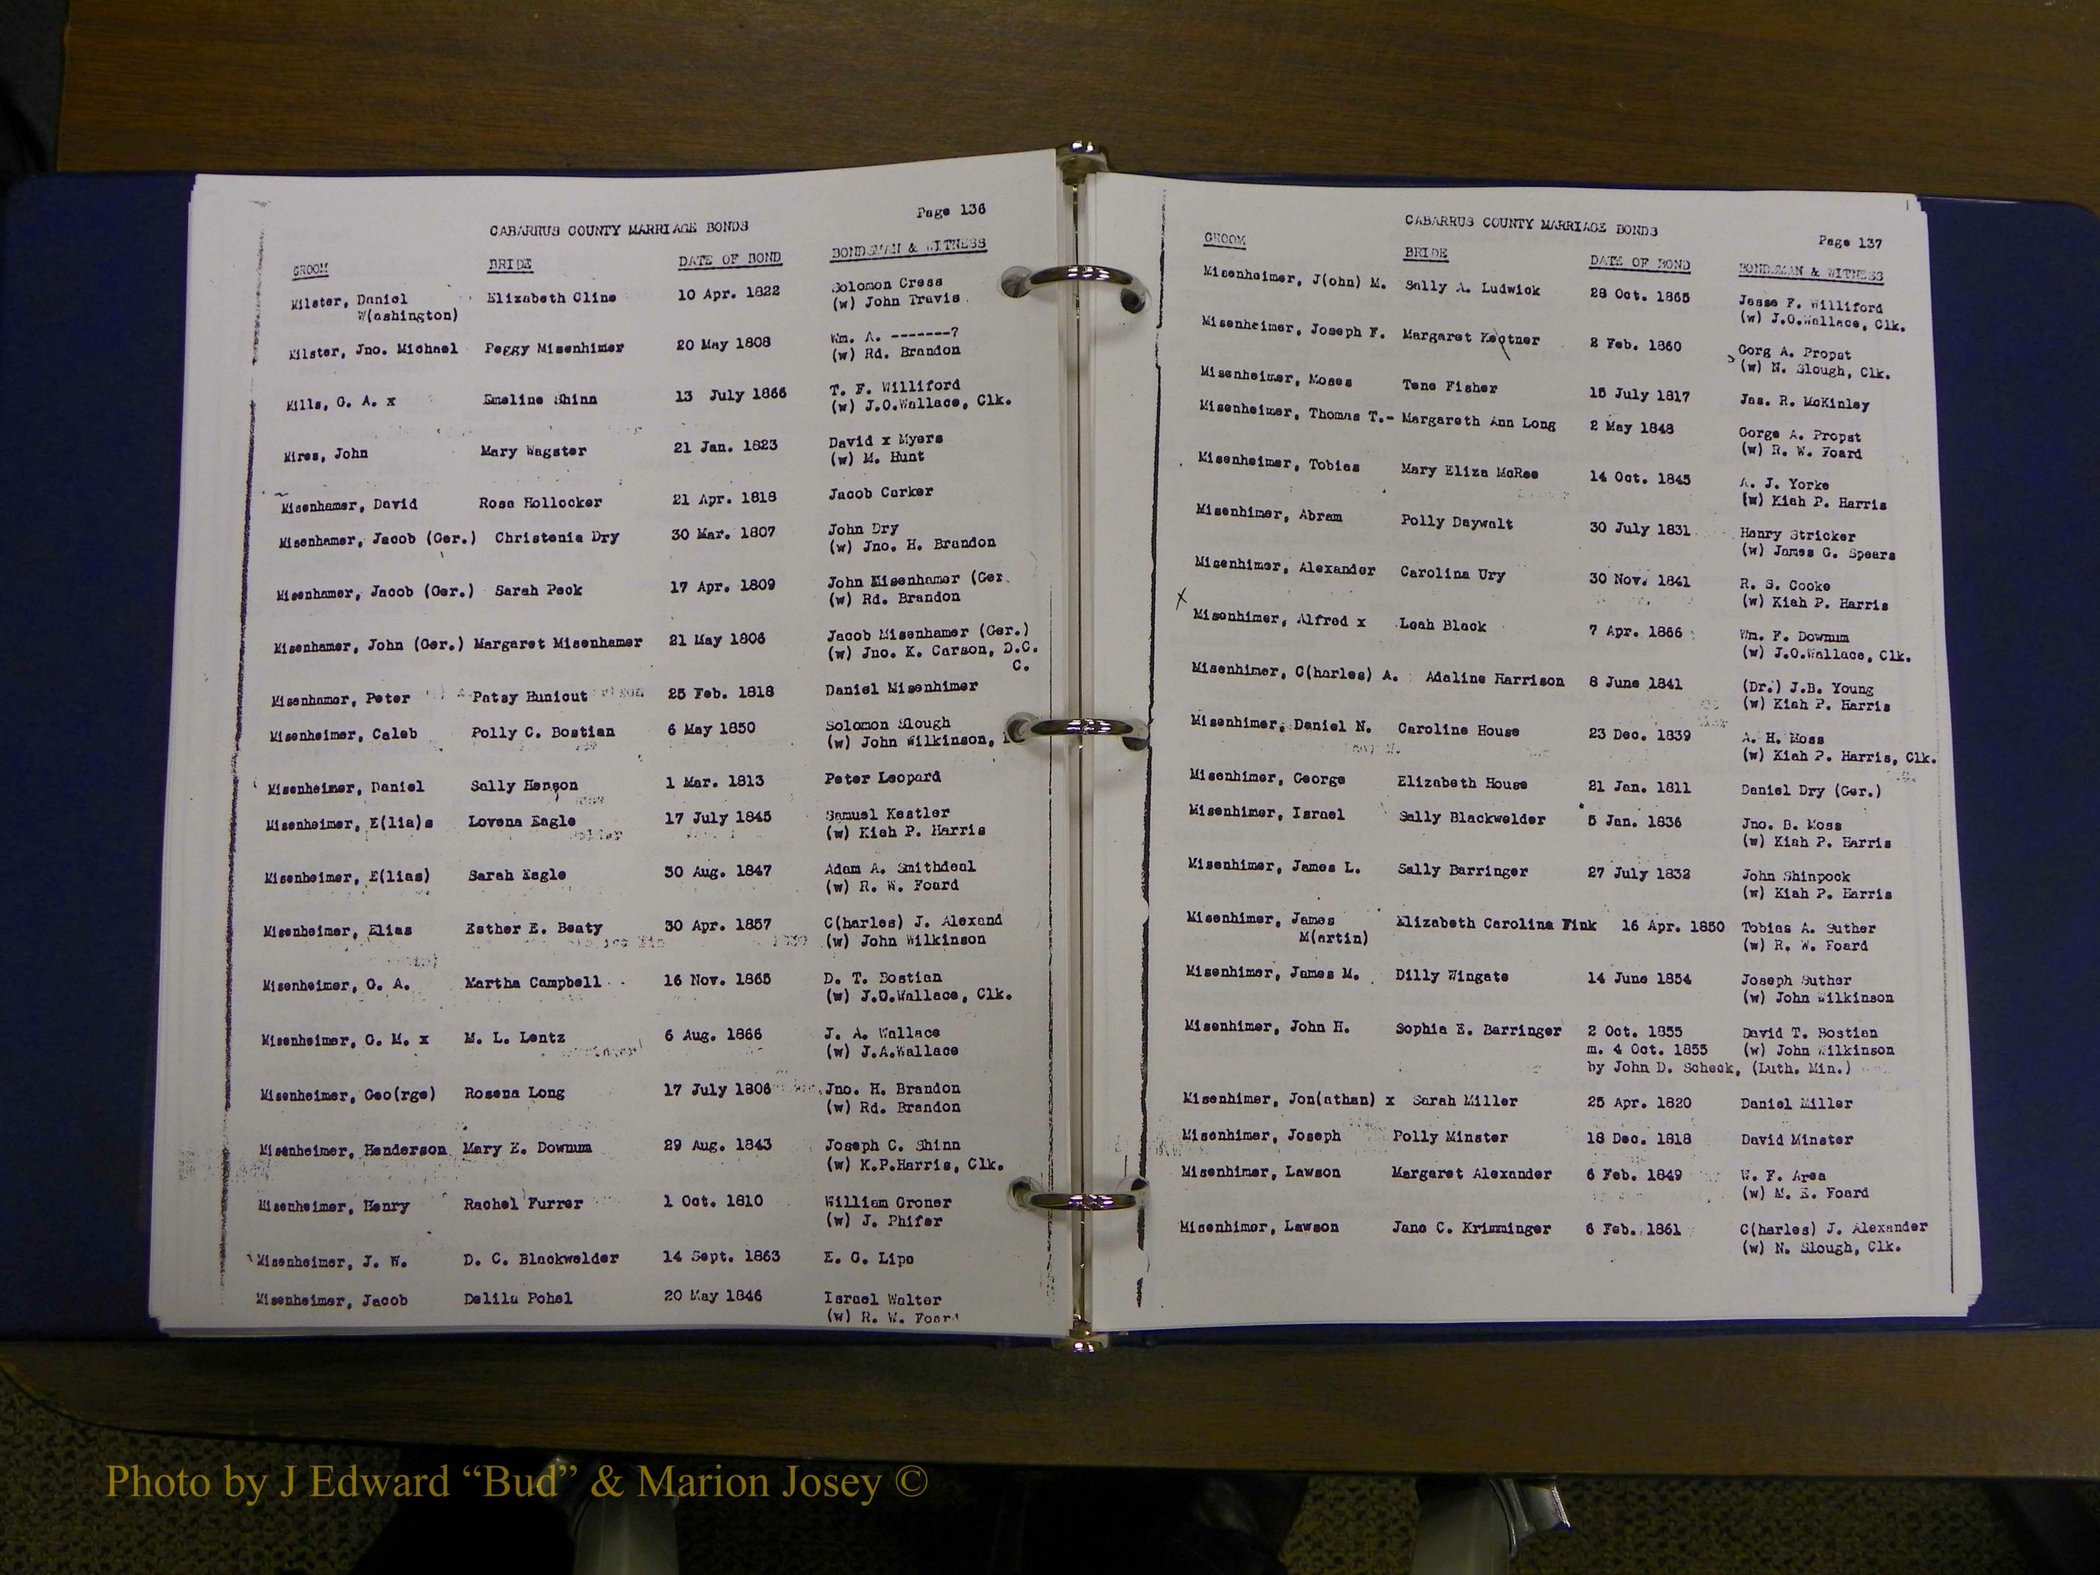 Page 136
CABARRUS COUNTY MARRIAGE BONDS
GROOM BRIDE DATE OF BOND BONDSMAN & WITNESS
Milster, Daniel Elizabeth Cline 10 Apr. 1822 Solomon Cress
W(ashington) (w) John Travis
Milster, Jno. Michael Peggy Misenhimer 20 May 1808 Wm. A. -------?
(w) Rd. Brandon
Mills, G. A. x Emeline Shinn 13 July 1866 T. F. Williford
(w) J.O.Wallace, Clk.
Mires, John Mary Wagster 21 Jan. 1823 David x Myers
(w) M. Hunt
Misenhamer, David Rosa Hollocker 21 Apr. 1818 Jacob Carker
Misenhamer, Jacob (Ger.) Christenia Dry 30 Mar. 1807 John Dry
(w) Jno. H. Brandon
Misenhamer, Jacob (Ger.) Sarah Peck 17 Apr. 1809 John Misenhamer (Ger.
(w) Rd. Brandon
Misenhamer, John (Ger.) Margaret Misenhamer 21 May 1806 Jacob Misenhamer (Ger.)
(w) Jno. K. Carson, D.C.
C.
Misenhamer, Peter Patsy Hunicut 25 Feb. 1818 Daniel Misenhimer
Misenheimer, Caleb Polly C. Bostian 6 May 1850 Solomon Slough
(w) John Wilkinson,
Misenheimer, Daniel Sally Henson 1 Mar. 1813 Peter Leopard
Misenheimer, E(lia)s Lovena Eagle 17 July 1845 Samuel Kestler
(w) Kiah P. Harris
Misenheimer, E(lias) Sarah Eagle 30 Aug. 1847 Adam A. Smithdeal
(w) R. W. Foard
Misenheimer, Elias Esther E. Beaty 30 Apr. 1857 C(harles) J. Alexand
(w) John Wilkinson
Misenheimer, G. A. Martha Campbell 16 Nov. 1865 D. T. Bostian
(w) J.O.Wallace, Clk.
Misenheimer, G. M. x M. L. Lentz 6 Aug. 1866 J. A. Wallace
(w) J.A.Wallace
Misenheimer, Geo(rge) Rosena Long 17 July 1806 Jno. H. Brandon
(w) Rd. Brandon
Misenheimer, Henderson Mary E. Downum 29 Aug. 1843 Joseph C. Shinn
(w) K.P.Harris, Clk.
Misenheimer, Henry Rachel Furrer 1 Oct. 1810 William Groner
(w) J. Phifer
Misenheimer, J. W. D. C. Blackwelder 14 Sept. 1863 E. G. Lipe
Misenheimer, Jacob Delila Pohel 20 May 1846 Israel Walter
(w) R. W. Foard
CABARRUS COUNTY MARRIAGE BONDS
Page 137
GROOM BRIDE DATE OF BOND BONDSMAN & WITNESS
Misenheimer, J(ohn) M. Sally A. Ludwick 28 Oct. 1865 Jesse F. Williford
(w) J.O.Wallace, Clk.
Misenheimer, Joseph F. Margaret 2 Feb. 1860 Gorg A. Propst
(w) N. Slough, Clk.
Misenheimer, Moses Tene Fisher 15 July 1817 Jas. R. McKinley
Misenheimer, Thomas T.- Margareth Ann Long 2 May 1848 Gorge A. Propst
(w) R. W. Foard
Misenheimer, Tobias Mary Eliza McRee 14 Oct. 1845 A. J. Yorke
(w) Kiah P. Harris
Misenhimer, Abram Polly Daywalt 30 July 1831 Henry Stricker
(w) James G. Spears
Misenhimer, Alexander Carolina Ury 30 Nov. 1841 R. S. Cooke
(w) Kiah P. Harris
X
Misenhimer, Alfred x Leah Black 7 Apr. 1866 Wm. F. Downum
(w) J.O.Wallace, Clk.
Misenhimer, C(harles) A. Adaline Harrison 8 June 1841 (Dr.) J.B. Young
(w) Kiah P. Harris
Misenhimer, Daniel N. Caroline House 23 Dec. 1839 A. H. Moss
(w) Kiah P. Harris, Clk.
Misenhimer, George Elizabeth House 21 Jan. 1811 Daniel Dry (Ger.)
Misenhimer, Israel Sally Blackwelder 5 Jan. 1836 Jno. B. Moss
(w) Kiah P. Harris
Misenhimer, James L. Sally Barringer 27 July 1832 John Shinpock
(w) Kiah P. Harris
Misenhimer, James Elizabeth Carolina Fink 16 Apr. 1850 Tobias A. Suther
M(artin) (w) R. W. Foard
Misenhimer, James M. Dilly Wingate 14 June 1854 Joseph Suther
(w) John Wilkinson
Misenhimer, John H. Sophia E. Barringer 2 Oct. 1855 David T. Bostian
m. 4 Oct. 1855 (w) John Wilkinson
by John D. Scheck, (Luth. Min.)
Misenhimer, Jon(athan) x Sarah Miller 25 Apr. 1820 Daniel Miller
Misenhimer, Joseph Polly Minster 18 Dec. 1818 David Minster
Misenhimer, Lawson Margaret Alexander 6 Feb. 1849 W. F. Area
(w) M. E. Foard
Misenhimer, Lawson Jane C. Krimminger 6 Feb. 1861 C(harles) J. Alexander
(w) N. Slough, Clk.
Photo by J Edward “Bud” & Marion Josey ©